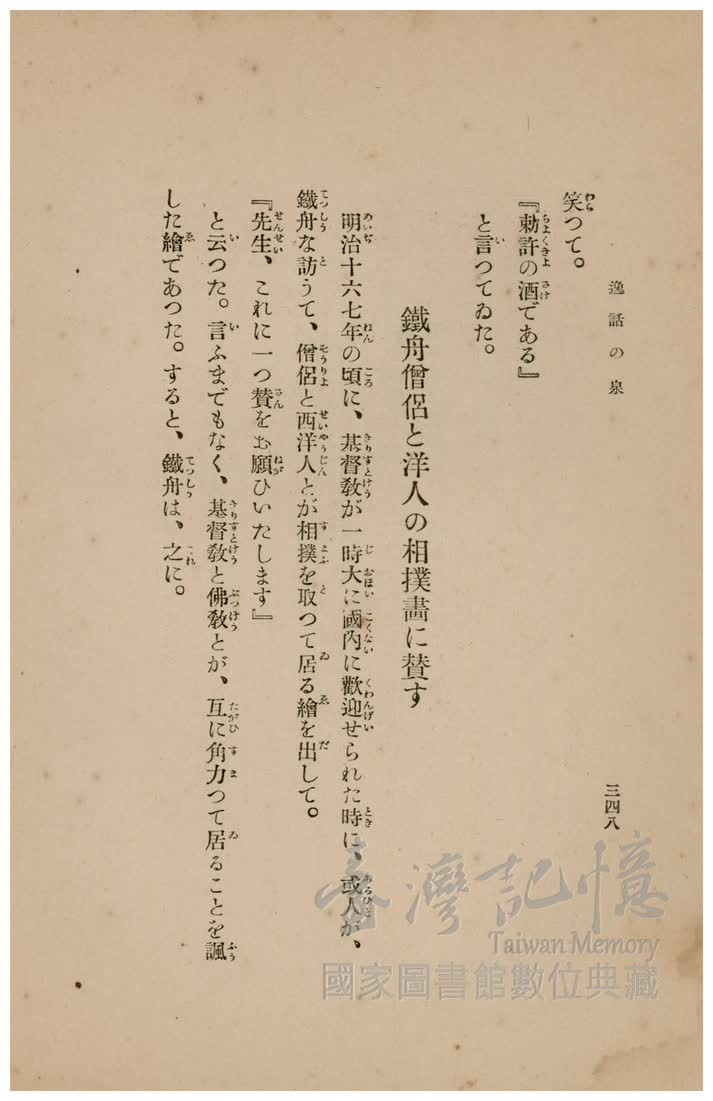 逸話の泉
三四八
笑つて。
『勅許の酒である』
と言つてゐた。
鐵舟僧侶と洋人の相撲畵に賛す
明治十六七年の頃に、基督敎が一時大に國內に歡迎せられた時に、或人が、
鐵舟な訪うて、僧侶と西洋人とが相撲を取つて居る繪を出して。
『先生、これに一つ賛をお願ひいたします』
と云つた。言ふまでもなく、基督敎と佛敎とが、互に角力つて居ることを諷
した繪であつた。すると、鐵舟は、之に。
臺灣記憶
Taiwan Memory
國家圖書館數位典藏